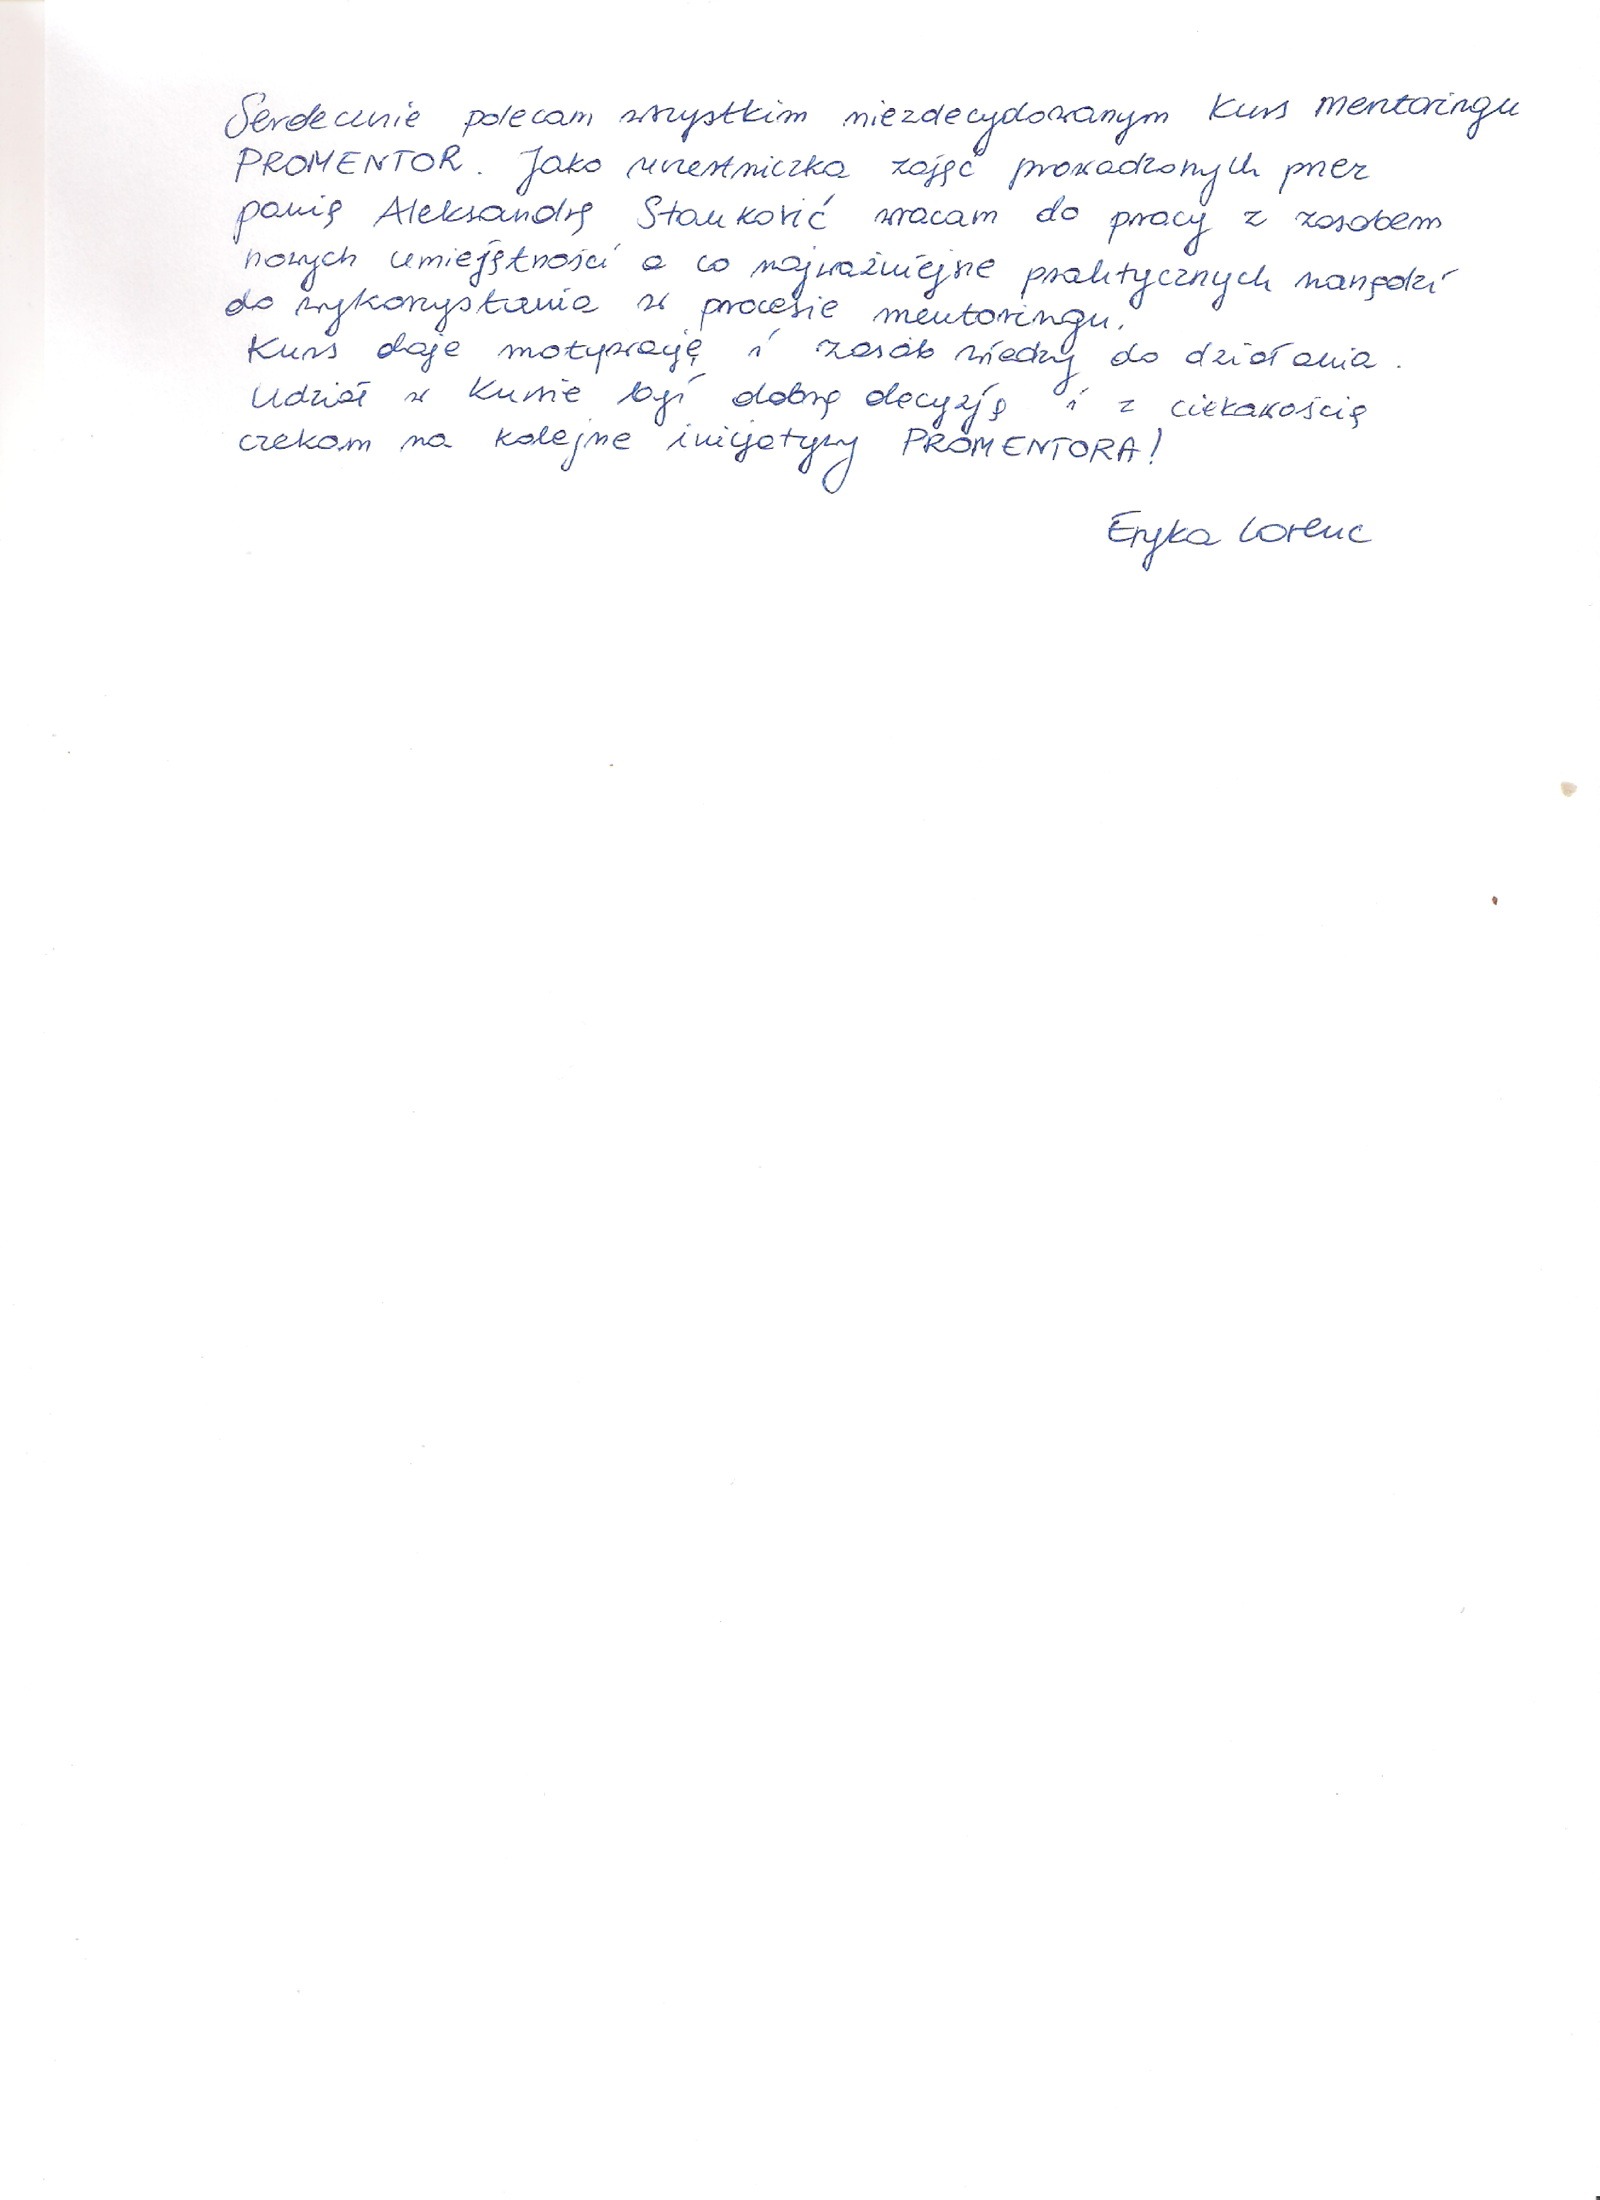 Serdecznie polecam wszystkim niezdecydowanym kurs mentoringu
PROMENTOR. Jako uczestniczka zajęć prowadzonych przez
panią Aleksandrę Stanković wracam do pracy z zasobem
nowych umiejętności a co najważniejsze praktycznych narzędzi
do wykorzystania w procesie mentoringu.
Kurs daje motywację i zasób wiedzy do działania.
Udział w kursie był dobrą decyzją i z ciekawością
czekam na kolejne inicjatywy PROMENTORA!
Eryka Lorenc